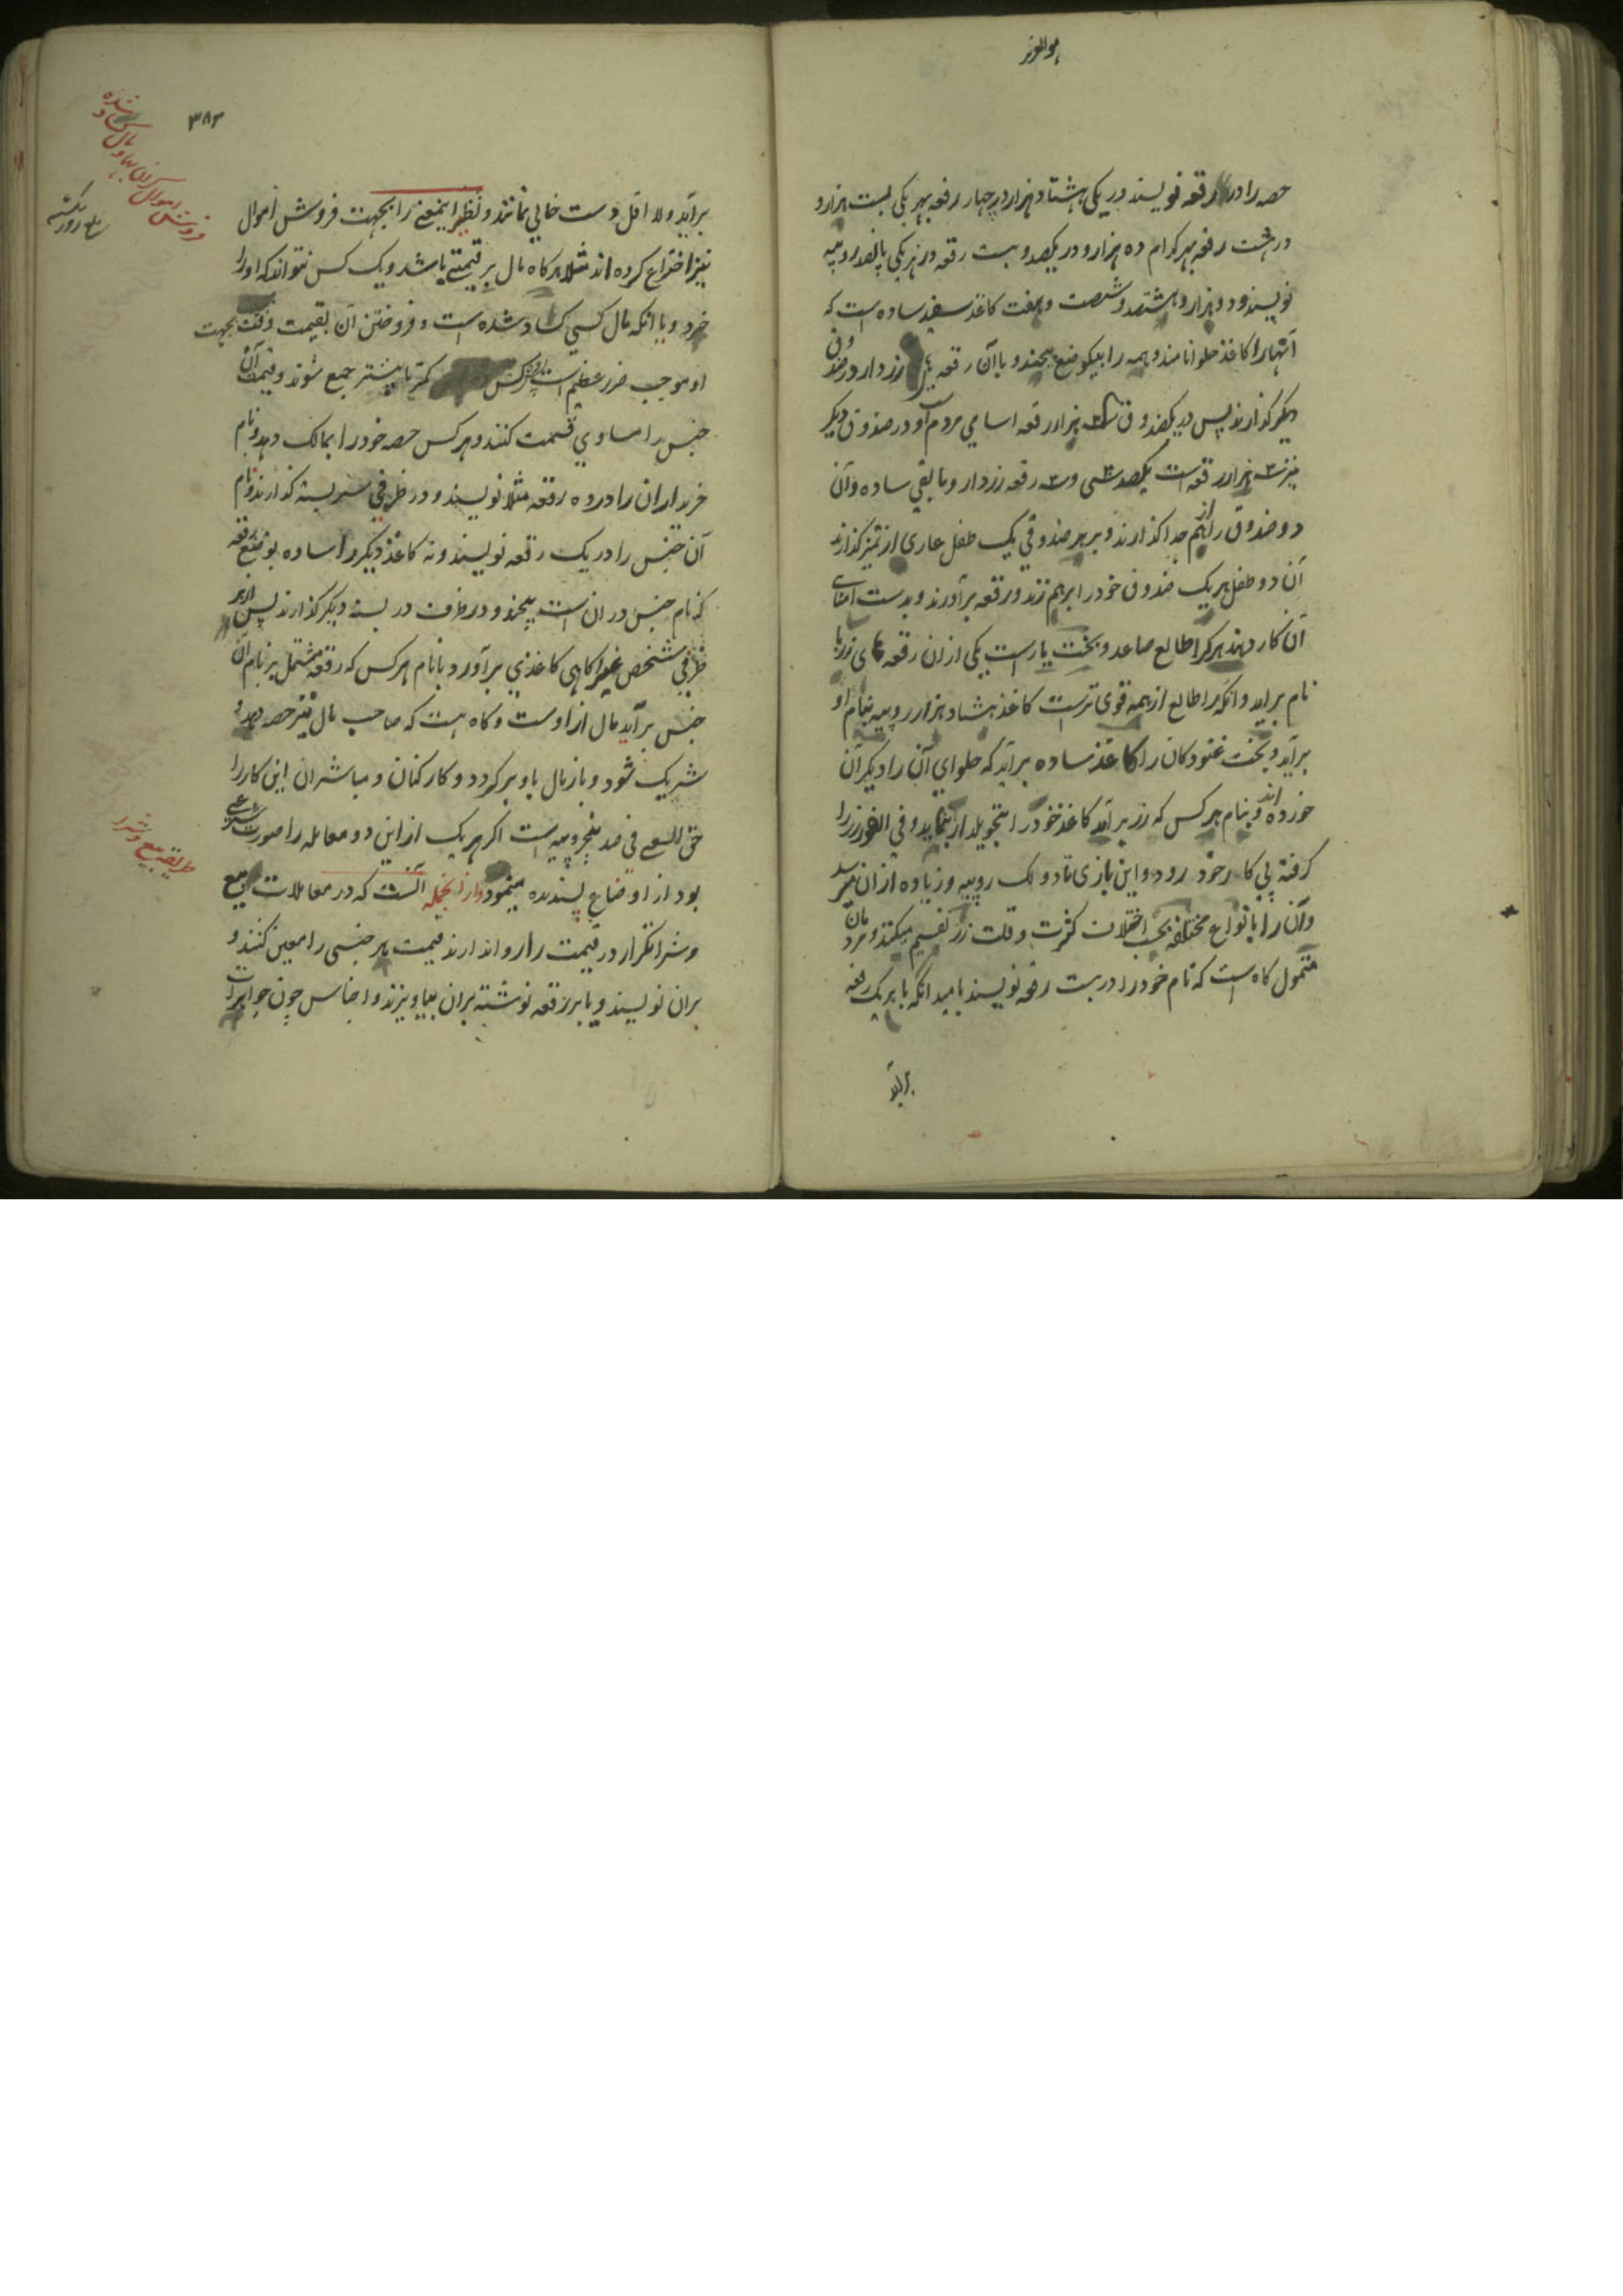 هوالعزیز
حصه را در رقعه نویسند در یکی هشتاد هزار و در چهار رقعه بهر یکی بست هزار و
در هشت رقعه بهر کدام ده هزار و در یکصد و بست رقعه در هر یکی پانصد روپیه
نویسند و دو هزار و هشتصد و شصت و هفت کاغذ سفید ساده است که
آنها را کاغذ حلوا نامند و همه را بیکوضع پیچند و با آن رقعه زردار در صندوق
دیگر گذارند پس در یکصندوق هزار رقعه اسامی مردم است و در صندوق دیگر
نیز سه هزار رقعه است یکصد سی و سه رقعه زردار و مابقی ساده و آن
دو صندوق را از هم جدا گذارند و بر هر صندوقی یک طفل عاری از تمیز گذارند
آن دو طفل هر یک صندوق خود را برهم زند و رقعه برآورند و بدست امنای
آن کار دهند هر کرا طالع صاعد و بخت یار است یکی از ان رقعه های زر با
نام براید و انکه را طالع از همه قوی تر است کاغذ هشتاد هزار روپیه بنام او
برآید و بخت غنودکان را کاغذ ساده برآید که حلوای آن را دیگران
خورده اند و بنام هر کس که زر برآید کاغذ خود را بتحویلدار بنماید و فی الفور زر را
گرفته پی کار خود رود و این بازی تا دو لک روپیه و زیاده از ان میرسد
و آن را بانواع مختلفه بحسب اختلاف کثرت و قلت زر تقسیم میکنند و مردمان
متمول گاه است که نام خود را در بست رقعه نویسند بامید انکه با هر یک رقعه
برآید
۳۸۴
برآید و لا اقل دست خالی نمانند و نظیر اینمعنی را بجهت فروش اموال
نیز اختراع کرده اند مثلا هر گاه مال پر قیمتی باشد و یک کس نتواند که او را
خرد و یا انکه مال کسی کساد شده است و فروختن آن بقیمت وقت بجهت
او موجب ضرر عظیم است کس کمتر یا بیشتر جمع شوند و قیمت آن
جنس را مساوی قسمت کنند و هر کس حصه خود را بمالک دهد و نام
خریداران را در ده رقعه مثلا نویسند و در ظرفی سربسته گذارند و نام
آن جنس را در یک رقعه نویسند و نه کاغذ دیگر را ساده بوضع رقعه
که نام جنس در ان است پیچند و در ظرف در بسته دیگر گذارند پس از هر
ظرفی شخص غیر آگاهی کاغذی برآورد با نام هر کس که رقعه مشتمل بر نام آن
جنس برآید مال از اوست و گاه هست که صاحب مال نیز حصه دهد و
شریک شود و باز مال باو برگردد و کارکنان و مباشران این کار را
حق السعی فی صد پنجروپیه است اگر هر یک از این دو معامله را صورت شرعی
بود از اوضاع پسندیده مینمود و از آنجمله آنست که در معاملات بیع
و شرا تکرار در قیمت را روا ندارند قیمت هر جنسی را معین کنند و
بران نویسند و یا بر رقعه نوشته بران بیاویزند و اجناس چون جواهرات
فروش اموال گران بها و مال کساد شده
طریقه بیع و شرا